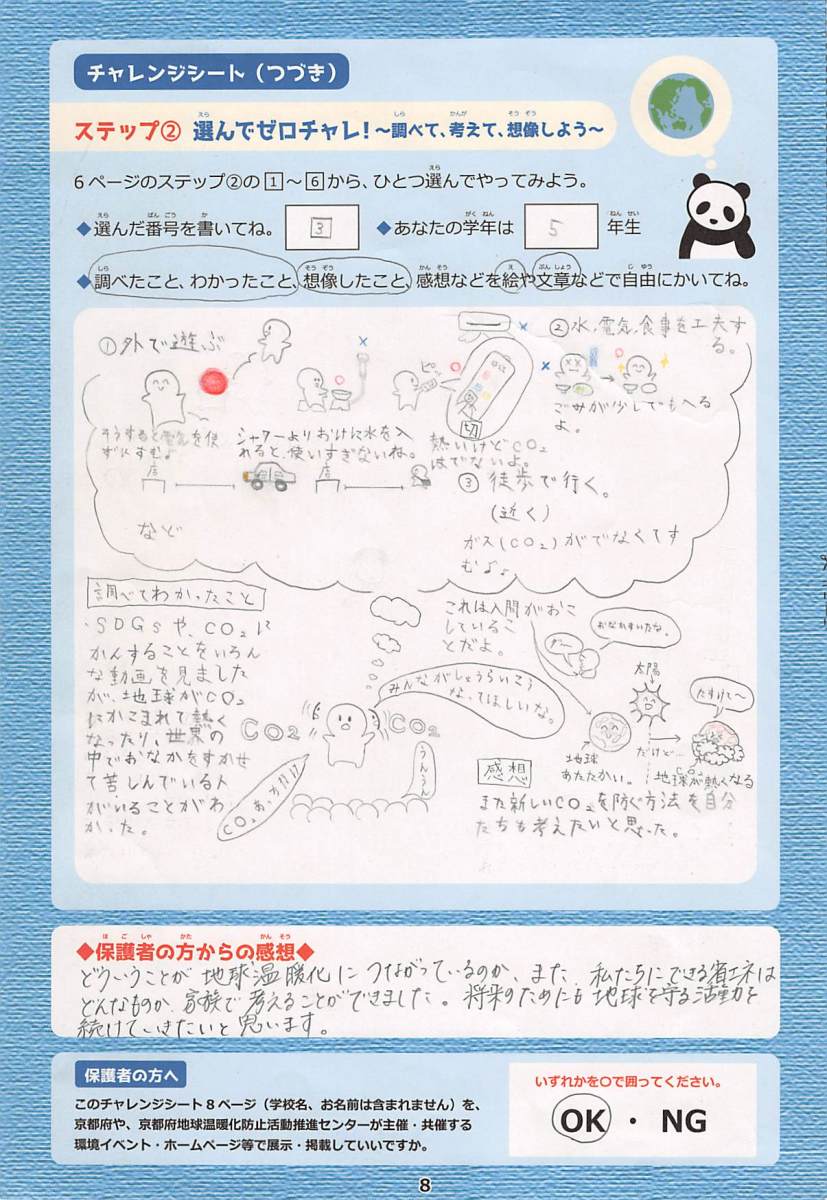 チャレンジシート（つづき）
ステップ② 選んでゼロチャレ！～調べて、考えて、想像しよう～
6ページのステップ②の1～6から、ひとつ選んでやってみよう。
◆選んだ番号を書いてね。 3 ◆あなたの学年は 5 年生
◆調べたこと、わかったこと、想像したこと、感想などを絵や文章などで自由にかいてね。
①外で遊ぶ
そうすると電気を使
わずにすむよ
シャワーよりおけに水を入
れると、使いすぎないね。
ピッ
切
熱いけどCO2
はでないよ。
②水、電気、食事を工夫す
る。
ごみが少しでもへる
よ。
店
店
など
③ 徒歩で行く。
(近く)
ガス(CO2)がでなくてす
むよ♪
調べてわかったこと
・SDGsや、CO2に
かんすることをいろん
な動画を見ました
が、地球がCO2
にかこまれて熱く
なったり、世界の
中でおなかをすかせ
て苦しんでいる人
がいることがわ
かった。
みんながしょうらいこう
なってほしいな。
CO2
CO2
CO2あっちだけ
うんうん
これは人間がおこ
しているこ
とだよ。
おなかすいたな。
太陽
たすけて～
地球
あたたかい。
だけど…
CO2
地球が熱くなる
感想
また新しいCO2を防ぐ方法を自分
たちも考えたいと思った。
◆保護者の方からの感想◆
どういうことが地球温暖化につながっているのか、また、私たちにできる省エネは
どんなものか、家族で考えることができました。将来のためにも地球を守る活動を
続けていきたいと思います。
保護者の方へ
このチャレンジシート8ページ（学校名、お名前は含まれません）を、
京都府や、京都府地球温暖化防止活動推進センターが主催・共催する
環境イベント・ホームページ等で展示・掲載していいですか。
いずれかを○で囲ってください。
OK ・ NG
8